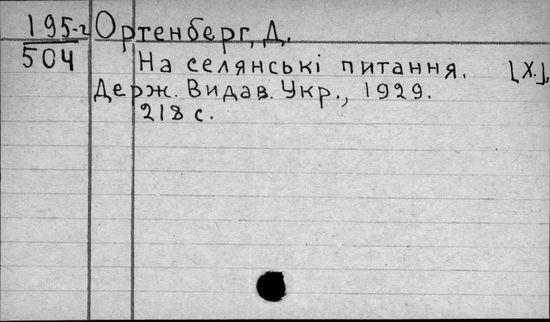 195-г Ортенберг, Д.
504
На селянські питання. [Х.],
Держ. Видав. Укр., 1929.
218 с.